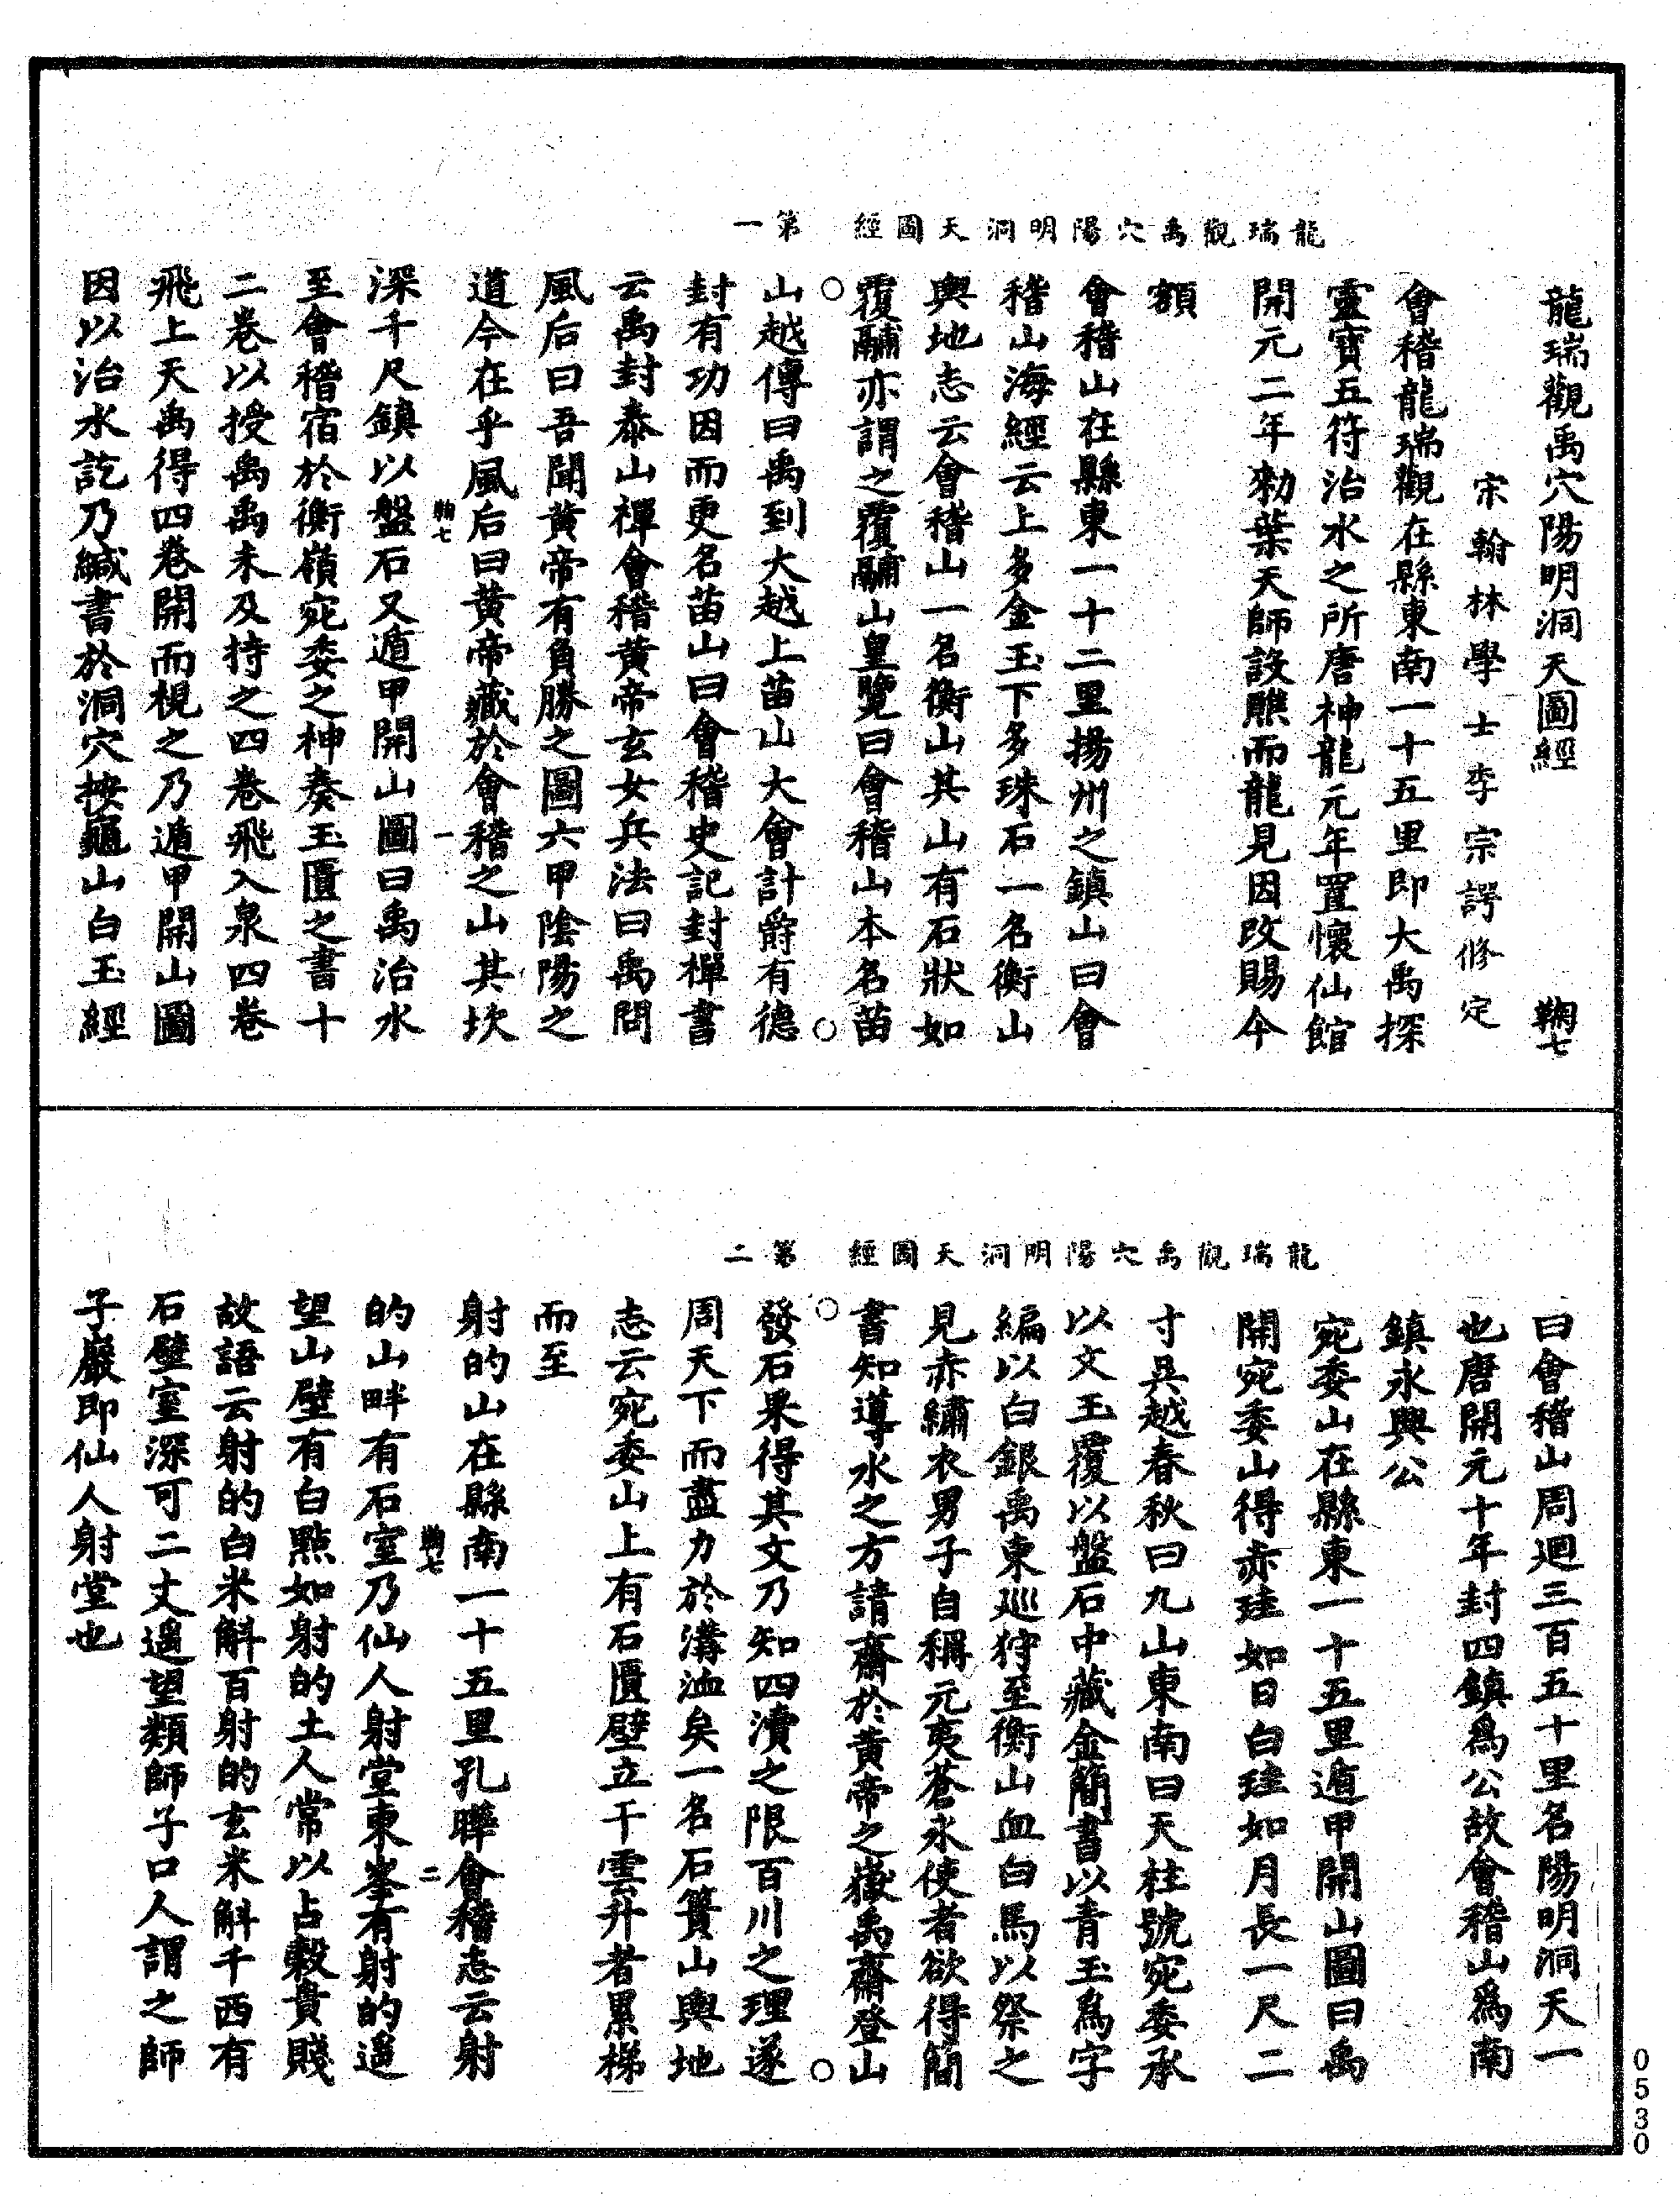 龍瑞觀禹穴陽明洞天圖經　第一
龍瑞觀禹穴陽明洞天圖經　鞠七
宋翰林學士李宗諤修定
會稽龍瑞觀在縣東南一十五里即大禹探
靈寶五符治水之所唐神龍元年置懷仙館
開元二年勑葉天師設醮而龍見因改賜今
額
會稽山在縣東一十二里揚州之鎮山曰會
稽山海經云上多金玉下多珠石一名衡山
輿地志云會稽山一名衡山其山有石狀如
覆鬴亦謂之覆鬴山皇覽曰會稽山本名苗
山越傳曰禹到大越上苗山大會計爵有德
封有功因而更名苗山曰會稽史記封禪書
云禹封泰山禪會稽黃帝玄女兵法曰禹問
風后曰吾聞黃帝有負勝之圖六甲陰陽之
道今在乎風后曰黃帝藏於會稽之山其坎
鞠七　一
深千尺鎮以盤石又遁甲開山圖曰禹治水
至會稽宿於衡嶺宛委之神奏玉匱之書十
二卷以授禹禹未及持之四卷飛入泉四卷
飛上天禹得四卷開而視之乃遁甲開山圖
因以治水訖乃緘書於洞穴按龜山白玉經
龍瑞觀禹穴陽明洞天圖經　第二
曰會稽山周迴三百五十里名陽明洞天一
也唐開元十年封四鎮爲公故會稽山爲南
鎮永興公
宛委山在縣東一十五里遁甲開山圖曰禹
開宛委山得赤珪如日白珪如月長一尺二
寸吳越春秋曰九山東南曰天柱號宛委承
以文玉覆以盤石中藏金簡書以青玉爲字
編以白銀禹東巡狩至衡山血白馬以祭之
見赤繡衣男子自稱元夷蒼水使者欲得簡
書知導水之方請齋於黃帝之嶽禹齋登山
發石果得其文乃知四瀆之限百川之理遂
周天下而盡力於溝洫矣一名石簣山輿地
志云宛委山上有石匱壁立干雲升者累梯
而至
射的山在縣南一十五里孔曄會稽志云射
鞠七　二
的山畔有石室乃仙人射堂東峯有射的遥
望山壁有白點如射的土人常以占穀貴賤
故語云射的白米斛百射的玄米斛千西有
石壁室深可二丈遥望類師子口人謂之師
子巖即仙人射堂也
0530